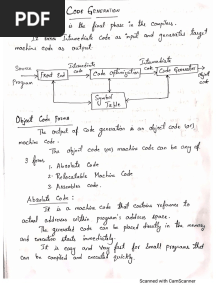 PDF
CODE GENERATION
is the final phase in the compilers.
It takes Intermediate Code as input and generates target
machine code as output.
Source Program
Front End
Intermediate code
Code Optimization
Intermediate code
Code Generator
object code
Symbol Table
Object Code Forms
The output of code generation is an object code (or)
machine code.
The object code (or) machine code can be any of
3 forms
1. Absolute Code
2. Relocatable Machine Code
3. Assembler code.
Absolute Code:
It is a machine code that contains reference to
actual address within program's address space.
The generated code can be placed directly in the memory
and execution starts immediately.
It is easy and very fast for Small programs that
can be compiled and executed quickly.
Scanned with CamScanner